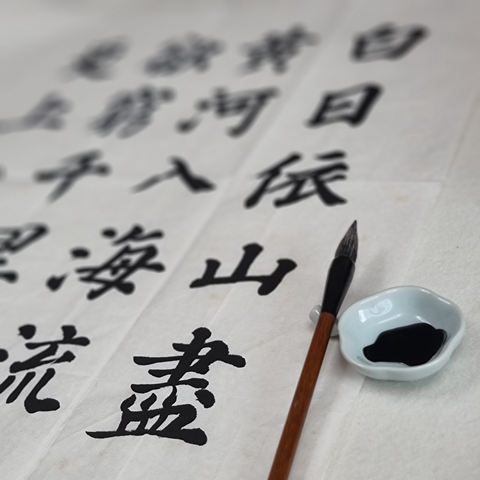 白日依山盡
黄河入海流
欲窮千
更上